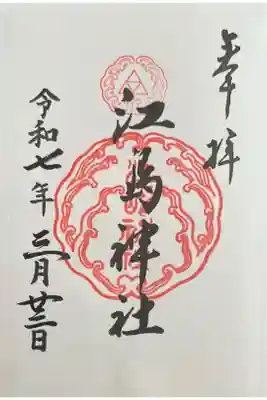 奉拝
江島神社
令和七年三月廿三日